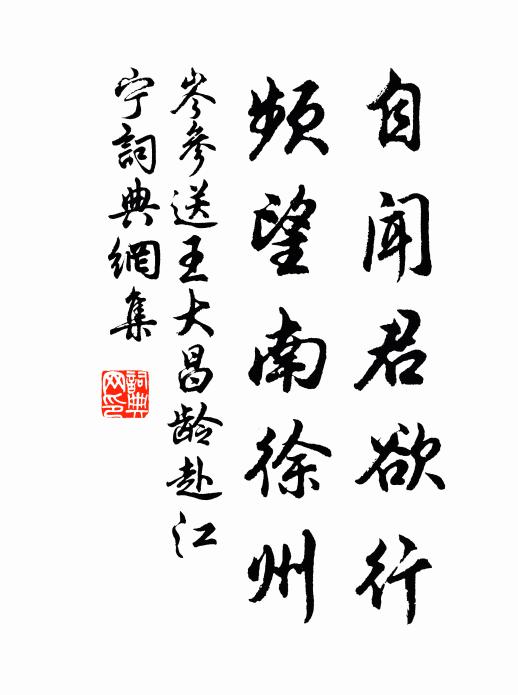 自闻君欲行
频望南徐州
岑參送王大昌龄赴江
宁詞典網集
詞典网印